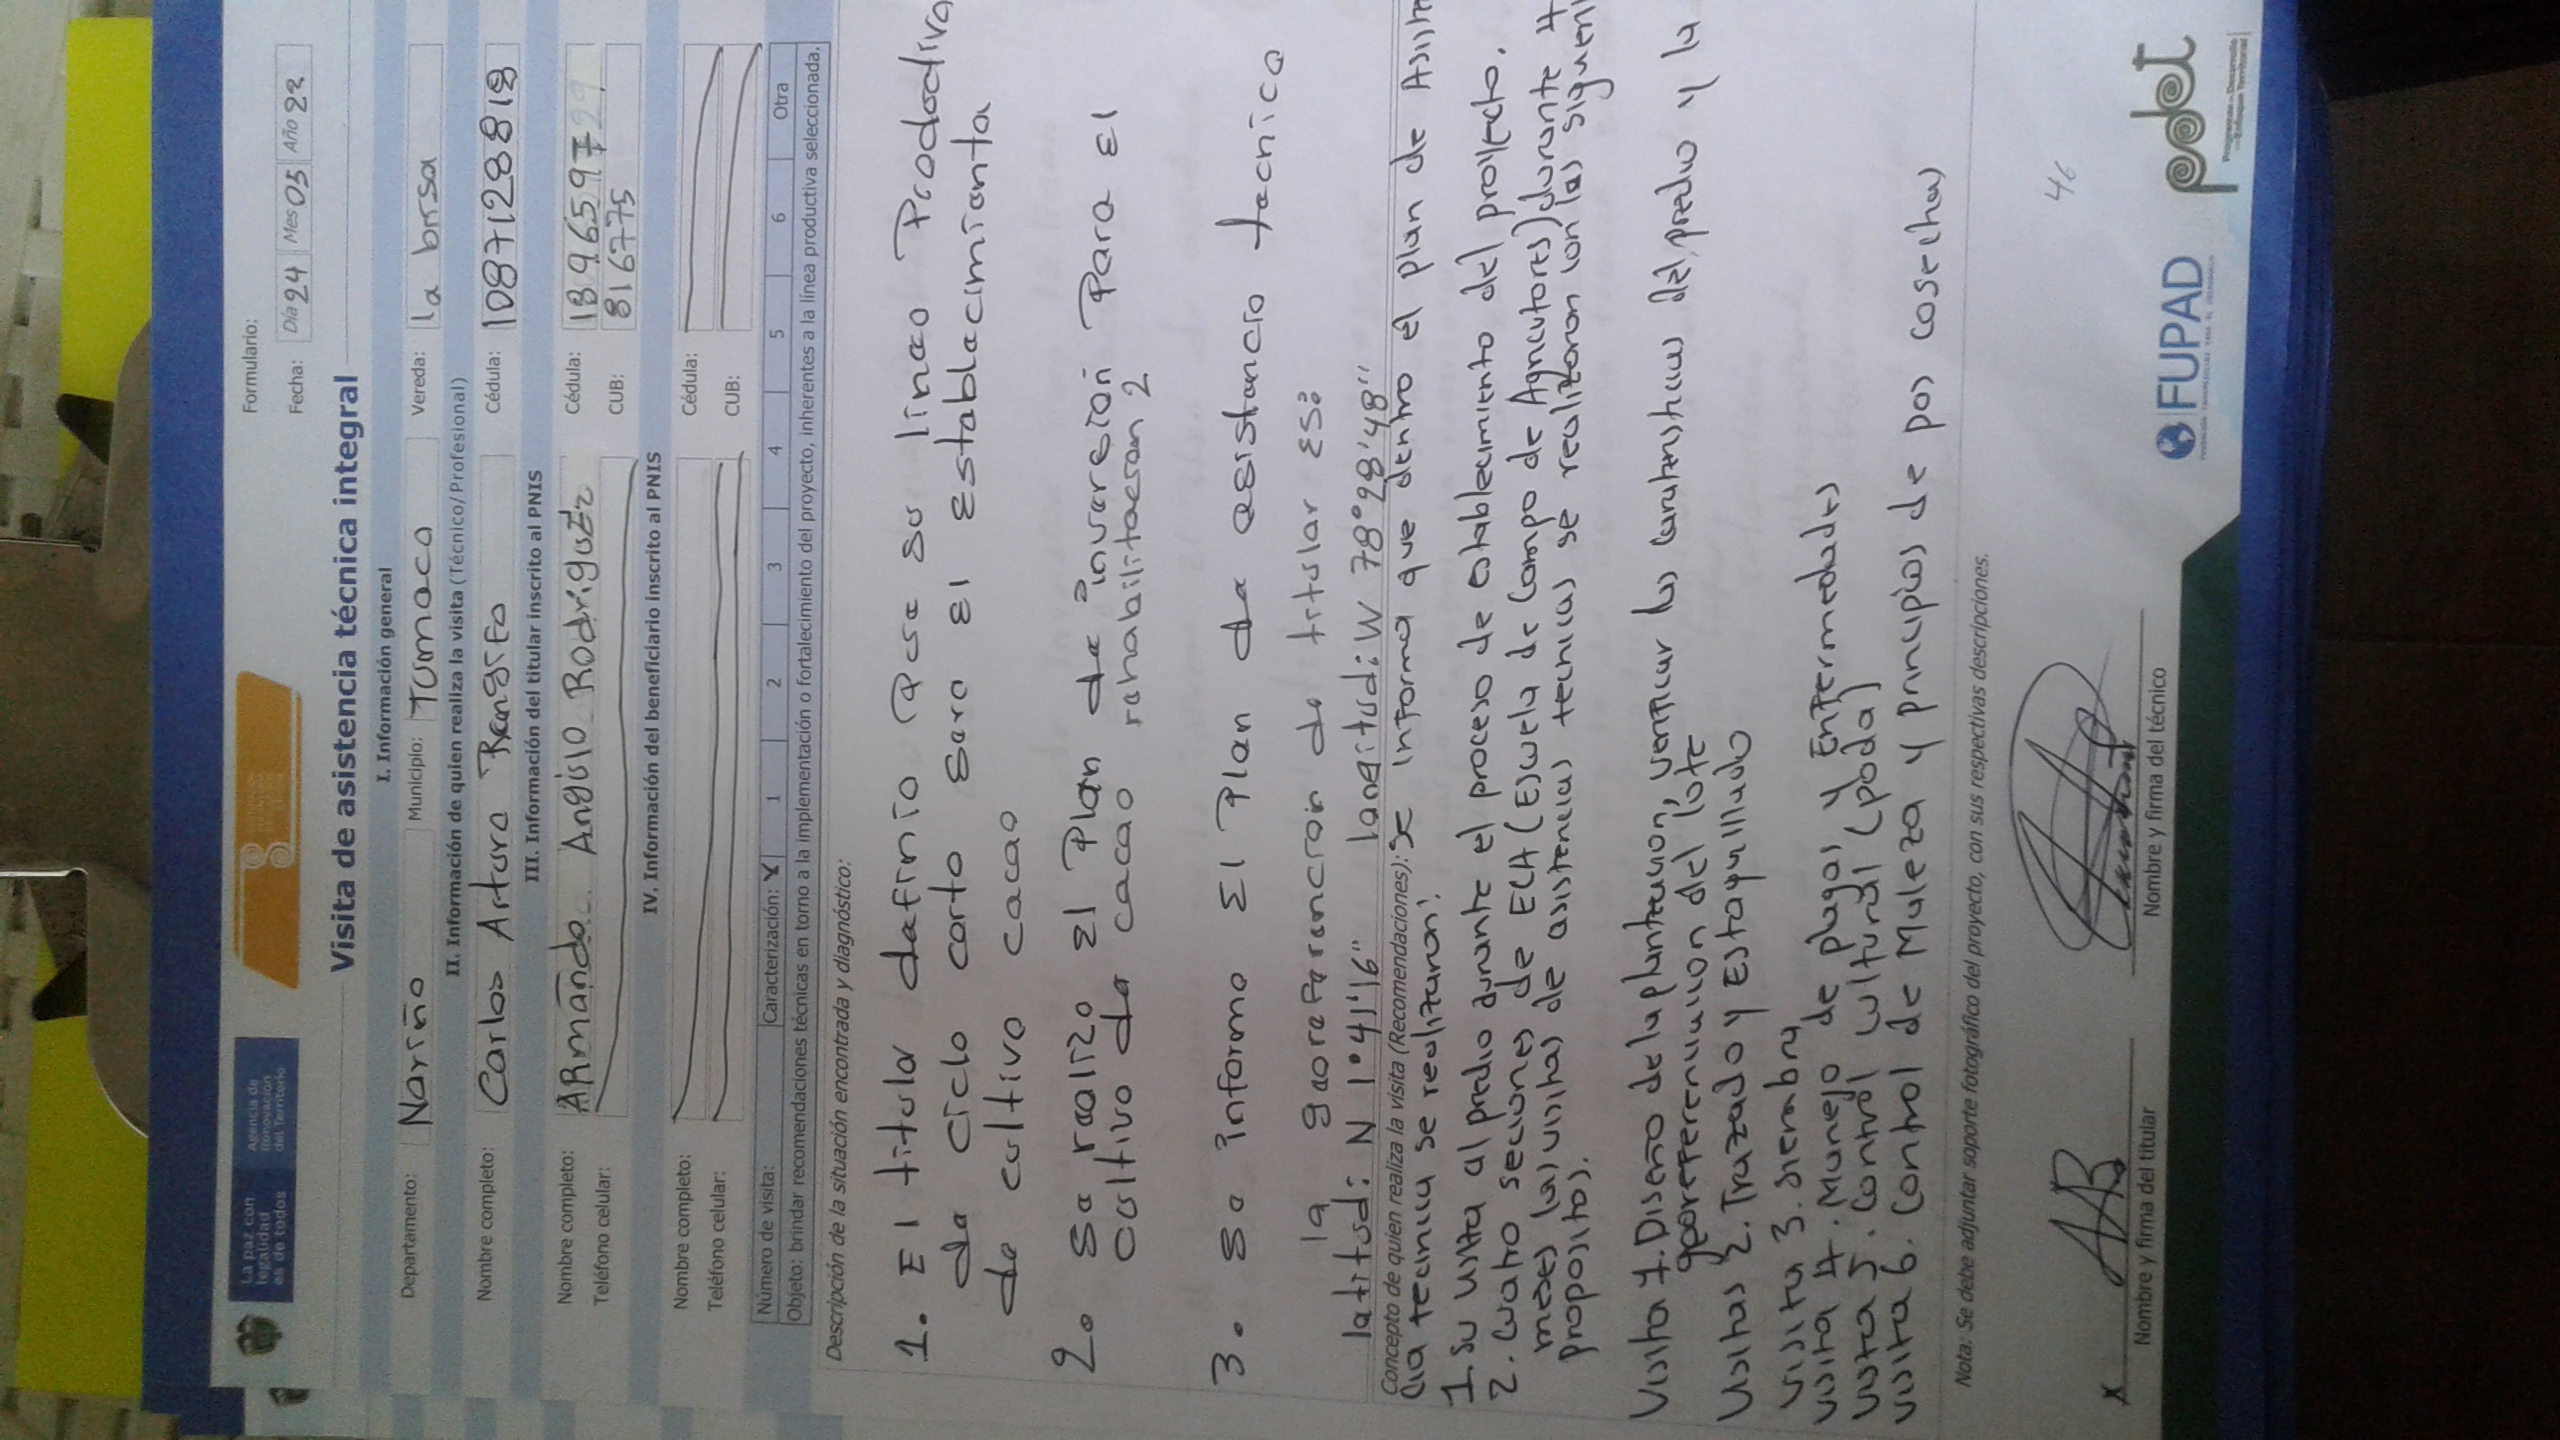 La paz con
legalidad
es de todos
Agencia de
Renovación
del Territorio
Formulario:
Fecha: Día 24 Mes 05 Año 22
Visita de asistencia técnica integral
I. Información general
Departamento: Nariño Municipio: Tumaco Vereda: la brsa
II. Información de quien realiza la visita (Técnico/Profesional)
Nombre completo: Carlos Arturo Rengifo Cédula: 1087128818
III. Información del titular inscrito al PNIS
Nombre completo: ARmando Angulo Rodriguez Cédula: 189659729
Teléfono celular: CUB: 816775
IV. Información del beneficiario inscrito al PNIS
Nombre completo: Cédula:
Teléfono celular: CUB:
Número de visita: Caracterización: X 1 2 3 4 5 6 Otra
Objeto: brindar recomendaciones técnicas en torno a la implementación o fortalecimiento del proyecto, inherentes a la línea productiva seleccionada.
Descripción de la situación encontrada y diagnóstico:
1. El titular definio que su lineo Prodoctiva
de ciclo corto sera El Establecimiento
de coltivo cacao
2. Se realizo El Plan de invercion Para El
coltivo de cacao rehabilitacson 2
3. Se informo El Plan de asistencio tecnico
la georeferencion de titular es:
latitud: N 1°41'16" longitud: W 78°28'48"
Concepto de quien realiza la visita (Recomendaciones): Se informa que dentro el plan de Asisten
cia tecnica se realizaran:
1. Su visita al predio durante el proceso de establecimiento del proyecto.
2. cuatro secciones de ECA (Escuela de Campo de Agricultores) durante 4
meses las visitas de asistencias tecnicas se realizaron con los siguient
propositos.
Visita 1. Diseño de la plantacion, verificar las caracteristicas del predio y la
georeferenciacion del lote
Visitas 2. Trazado y Estaquillado
Visita 3. siembra
visita 4. Manejo de plagas y Enfermedades
visita 5. Control cultural (poda)
visita 6. Control de Maleza y principios de pos cosechas
Nota: Se debe adjuntar soporte fotográfico del proyecto, con sus respectivas descripciones.
x ARB
Nombre y firma del titular
Nombre y firma del técnico
46
FUPAD
pdet
Programas de Desarrollo
con Enfoque Territorial